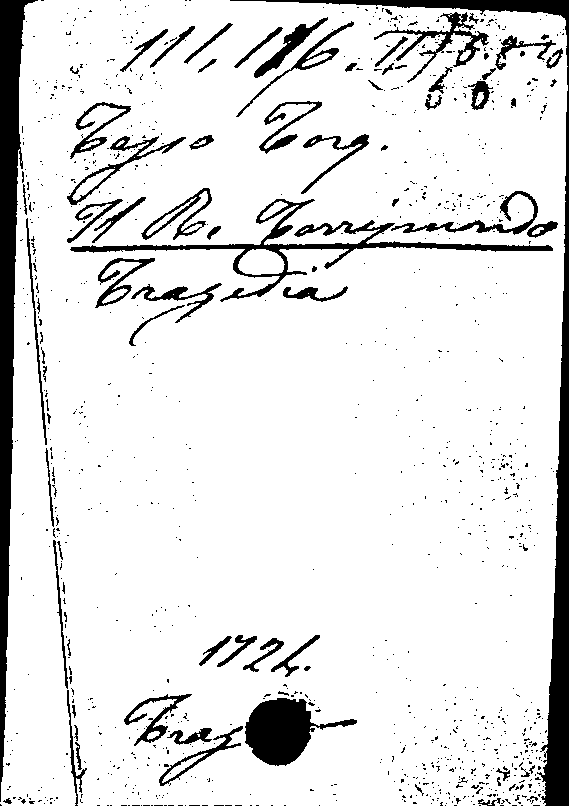 111,176. II) 6.8.20
6 6.
Tasso Torq.
Il R. Torrismondo
Tragedia
1724.
Trag